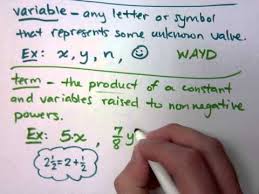 variable - any letter or symbol
that represents some unknown value.
Ex: x, y, n, ☺ WAYD
term - the product of a constant
and variables raised to nonnegative
powers.
Ex: 5x, 7/8 y
2½ = 2 + ½